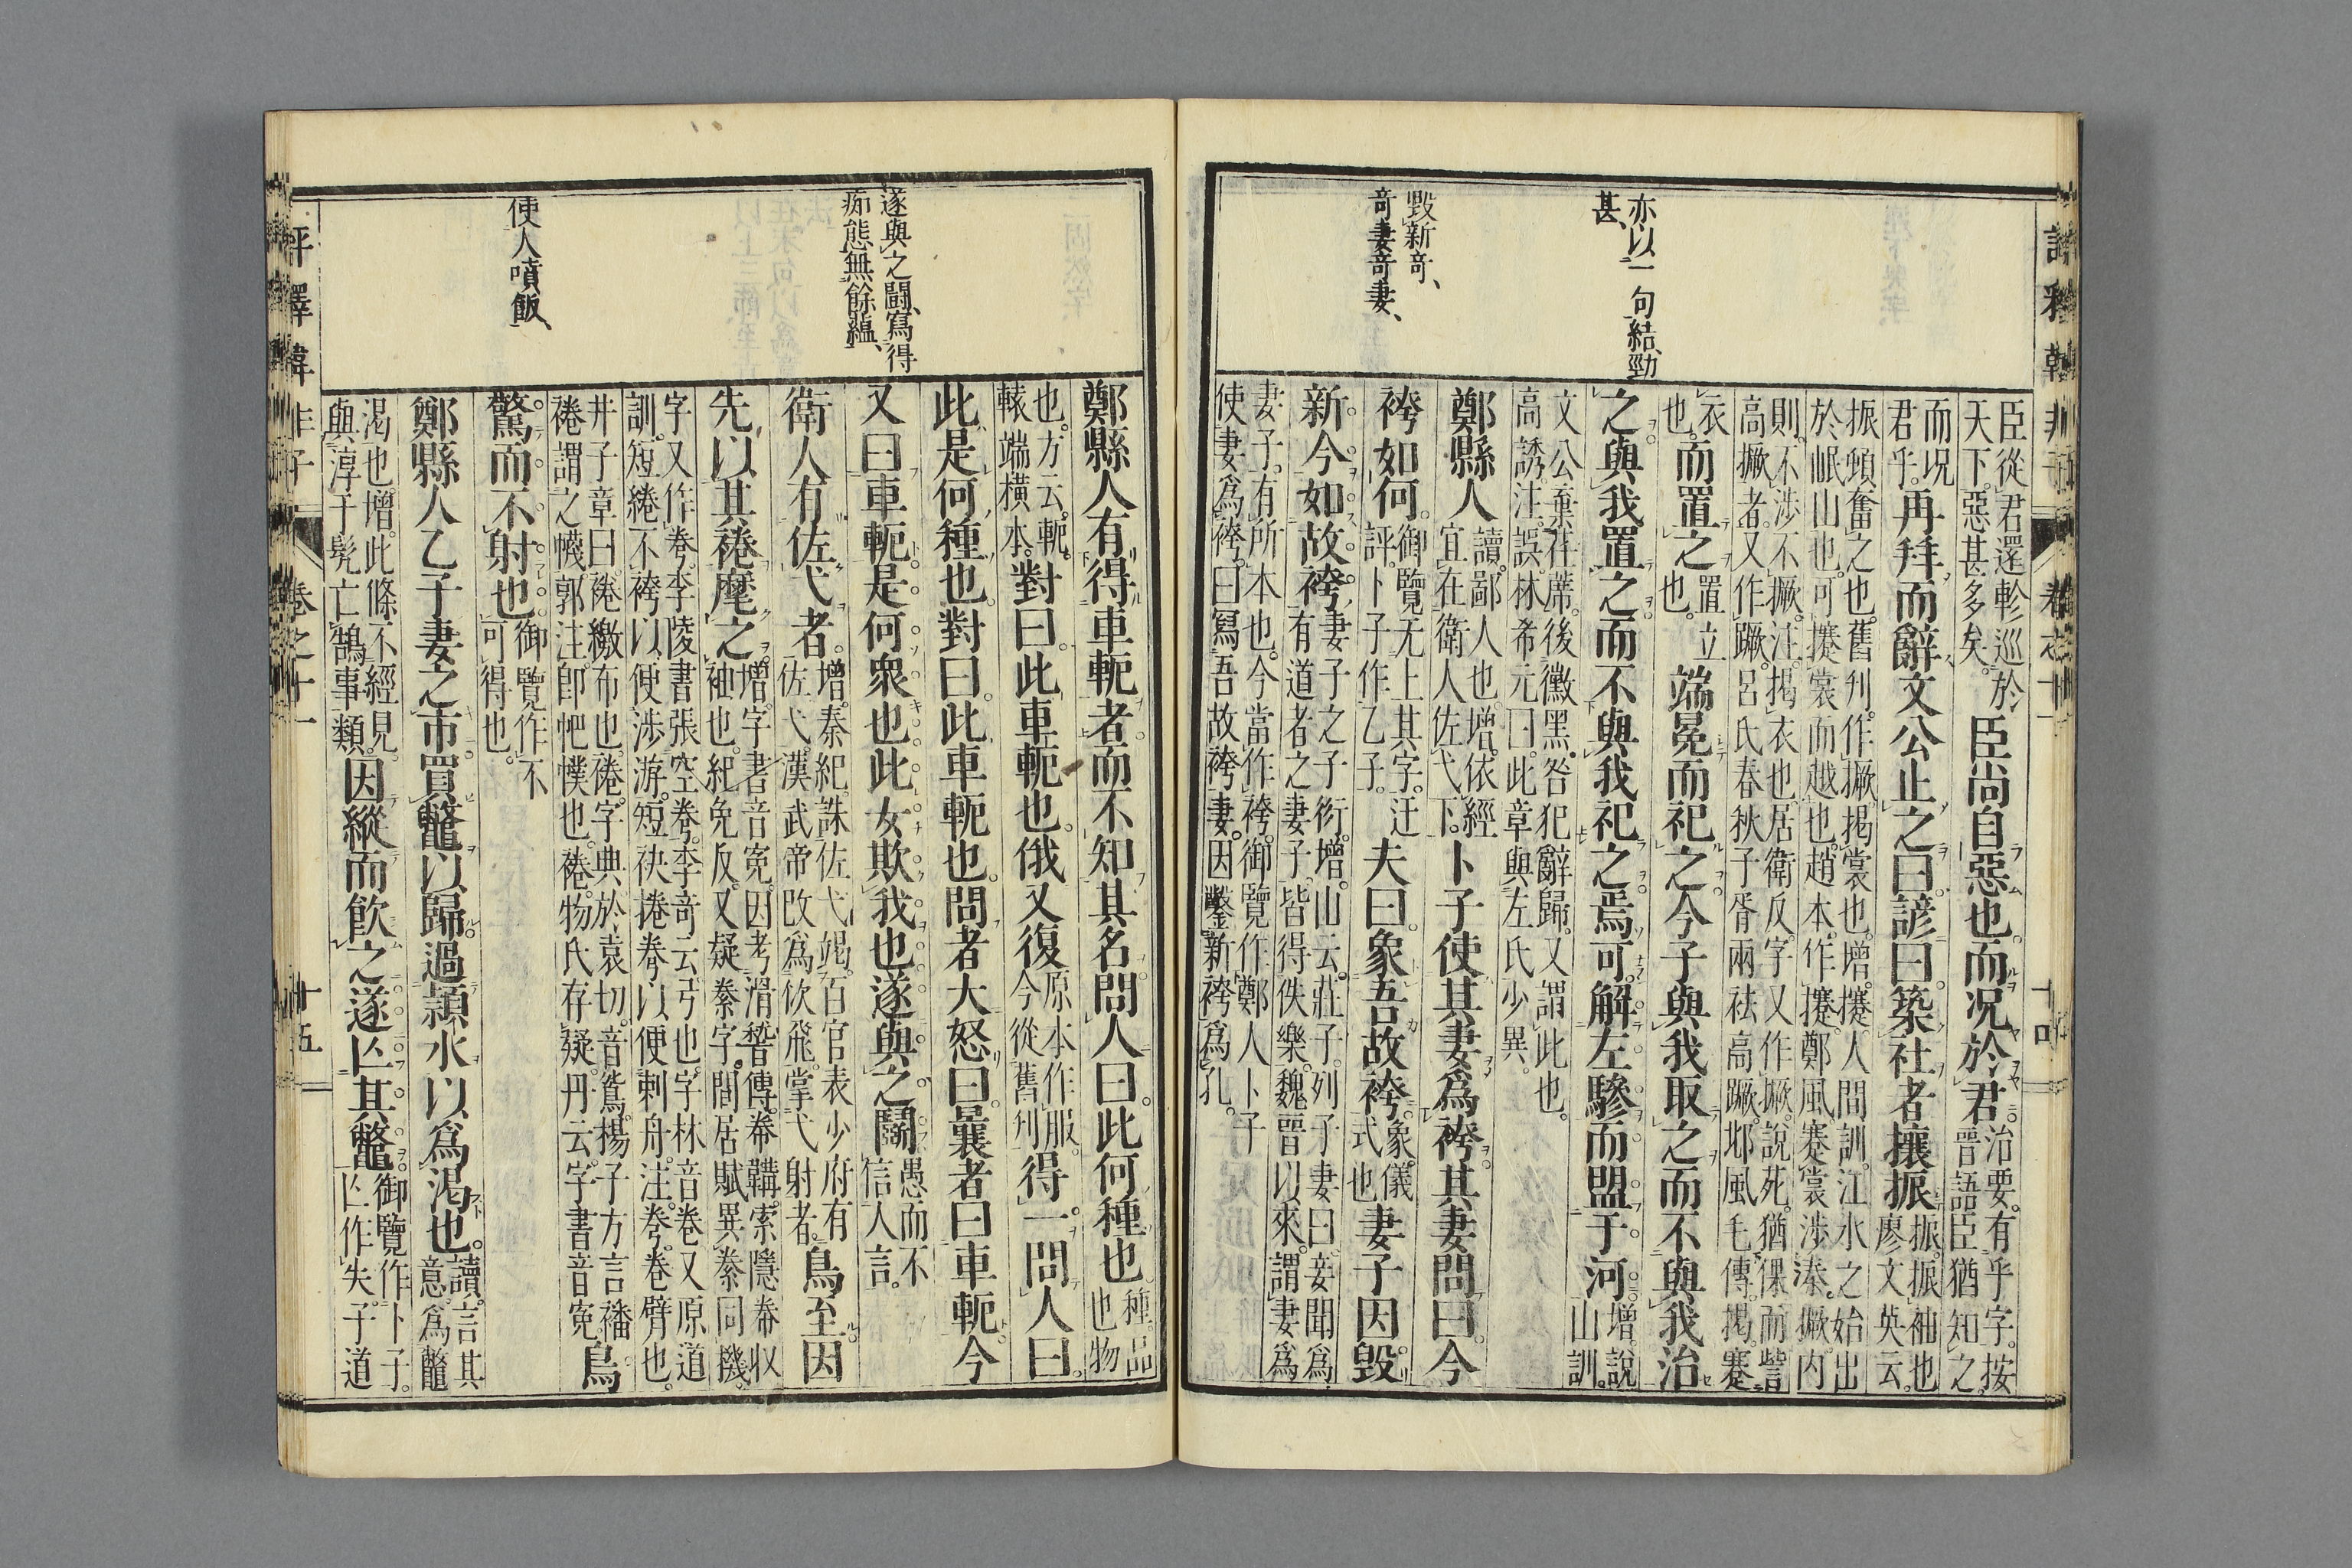 亦以一句結、勁
甚、
毀新奇、
奇妻奇妻、
臣從君還軫巡於
天下。惡甚多矣。
臣尚自惡也。而况於君。
治要。有乎字。按
晉語臣猶知之
而况
君乎。
再拜而辭。文公止之曰。諺曰。築社者攓撅
振。振。袖也
廖文英云。
振頫奮之也。舊刋。作撅。掲裳也。增。攓。人間訓。江水之始出
於岷山也。可攓裳而越也。趙本。作攓。鄭風蹇裳涉溱。撅。内
則。不涉不撅。注。掲衣也。居衛反。字又作撅。說苑。猶倮而訾
高撅者。又作蹶。呂氏春秋子胥兩袪高蹶。邶風毛傳。掲。蹇
衣
也。
而置之
置立
也。
端冕而祀之。今子與我取之。而不與我治
之。與我置之。而不與我祀之。焉可。解左驂而盟于河。
增。說
山訓。
文公棄荏蓆。後黴黑。咎犯辭歸。又謂此也。
高誘注。誤。林希元曰。此章與左氏少異。
鄭縣人
讀。鄙人也。增。依經
宜在衛人佐弋下。
卜子使其妻爲袴。其妻問曰。今
袴如何。
御覽无上其字。迂
評。卜子作乙子。
夫曰。象吾故袴。
象。儀
式也
妻子因毀
新。今如故袴。
妻子之子衍。增。山云。莊子。列子妻曰。妾聞爲
有道者之妻子。皆得佚樂。魏晉以來。謂妻爲
妻子。有所本也。今當作袴。御覽作鄭人卜子
使妻爲袴。曰寫吾故袴。妻。因鑿新袴爲孔。
遂與之鬪、寫得
痴態無餘蘊、
使人噴飯、
鄭縣人有得車軛者。而不知其名。問人曰。此何種也
種。品
也物
也。方云。軛。
轅端横木。
對曰。此車軛也。俄又復
原本作服。
今從舊刋
得一。問人曰。
此是何種也。對曰。此車軛也。問者大怒曰。曩者曰車軛。今
又曰車軛。是何衆也。此女欺我也。遂與之鬪
愚而不
信人言。
衛人有佐弋者。
增。秦紀。誅佐弋竭。百官表少府有
佐弋。漢武帝改爲佽飛。掌弋射者。
鳥至。因
先以其裷麾之。
增。字書音冤。因考滑稽傳。帣韝。索隱帣收
袖也。紀免反。又疑絭字。閒居賦異絭同機。
字又作巻。李陵書張空巻。李奇云弓也。字林音巻又原道
訓。短綣不袴以便涉游。短袂捲巻。以便刺舟。注。巻。巻臂也。
井子章曰。裷繳布也。裷字。典於袁切。音鴛。揚子方言襎
裷謂之幭。郭注。卽帊幞也。裷。物氏存疑。丹云。字書音冤
鳥
驚而不射也
御覽作不
可得也。
鄭縣人乙子妻之市。買鼈以歸。過頴水。以爲渴也。
讀。言其
意爲鼈
渴也增。此條不經見。
與淳于髡亡鵠事類。
因縱而飲之。遂亾其鼈
御覽作卜子。
亾作失。子道
十五